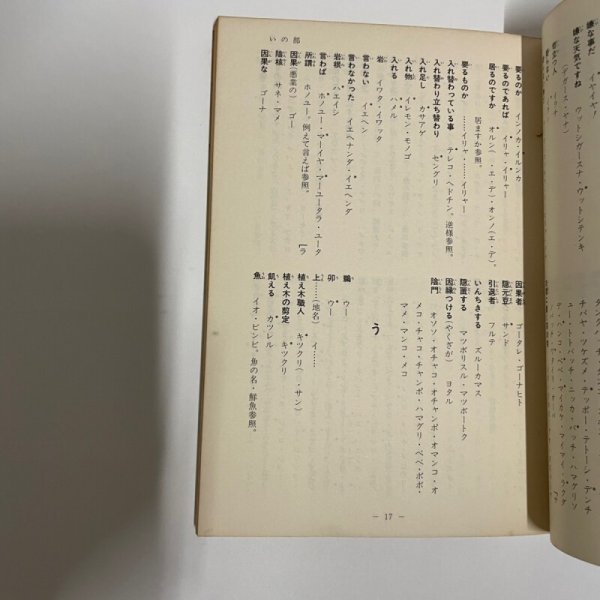 いの部
要るのか　インノカ・イルンカ
要るのであれば　イリャ・イリャー
居るのですか　オルン（・エ・デ）・オンノ（エ・デ）。
居ますか参照。
要るものか　……イリャ・……イリャー
入れ替わっている事　テレコ・ヘドチン。逆様参照。
入れ替わり立ち替わり　セングリ
入れ足し　カサアゲ
入れ物　イレモン・モノゴ
入れる　ハメル
岩　イワタ・イワッタ
言わない　イエヘン
言わなかった　イエヘナンダ・イエヘンダ
岩根　ハエイシ
言わば　ホノユー・マーイヤ・マーユータラ・ユータ〔ラ
所謂　ホノユー。例えて言えば参照。
因果（悪業の）　ゴー
陰核　サネ・マメ
因果な　ゴーナ
因果者　ゴータレ・ゴーナヒト
隠元豆　サンド
引退者　フルテ
いんちきする　ズルーカマス
隠匿する　マツボリスル・マツボートク
因縁つける（やくざが）　ヨタル
陰門　オソソ・オチャコ・オチャンポ・オマンコ・オ
メコ・チャコ・チャンポ・ハマグリ・ベベ・ボボ・
マメ・マンコ・メコ
う
鵜　ウー
卯　ウー
上……（地名）　イ……
植え木職人　キツクリ（・サン）
植え木の剪定　キツクリ
飢える　カツレル
魚　イオ・ビンビ。魚の名・鮮魚参照。
— 17 —
嫌な事だ　イヤイヤ！
嫌な天気ですね　ウットシガースナ・ウットシテンキ